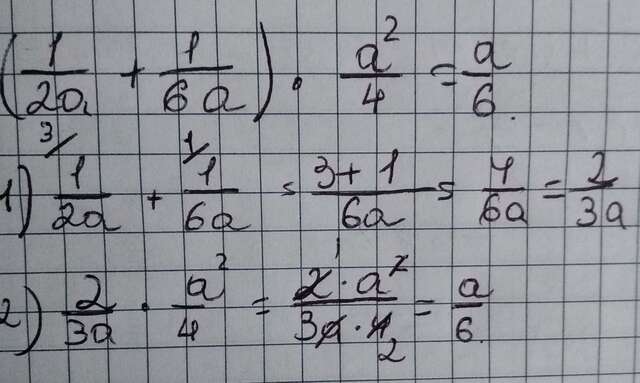 (1/2a + 1/6a) · a²/4 = a/6.
1) 3/ 1/2a + 1/ 1/6a = 3+1/6a = 4/6a = 2/3a
2) 2/3a · a²/4 = 2 1 · a²/3a · 4 2 = a/6.